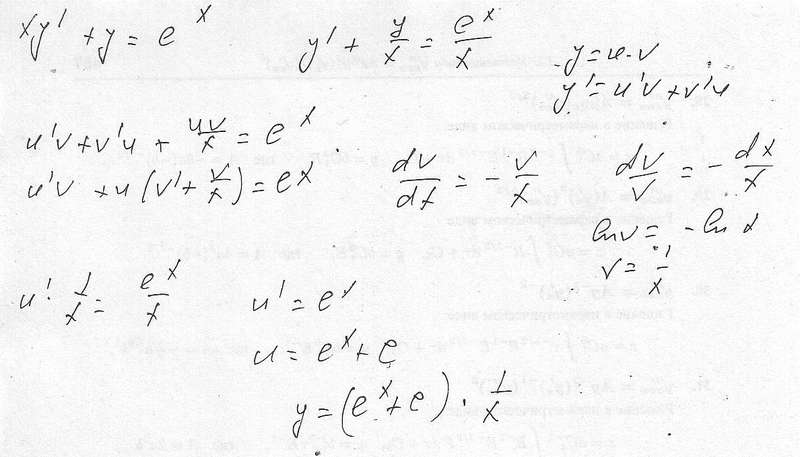 xy' + y = e^x
y' + y/x = e^x/x
y = u·v
y' = u'v + v'u
u'v + v'u + uv/x = e^x
u'v + u(v' + v/x) = e^x
dv/dx = -v/x
dv/v = -dx/x
ln v = -ln x
v = 1/x
u' 1/x = e^x/x
u' = e^x
u = e^x + c
y = (e^x + c) · 1/x